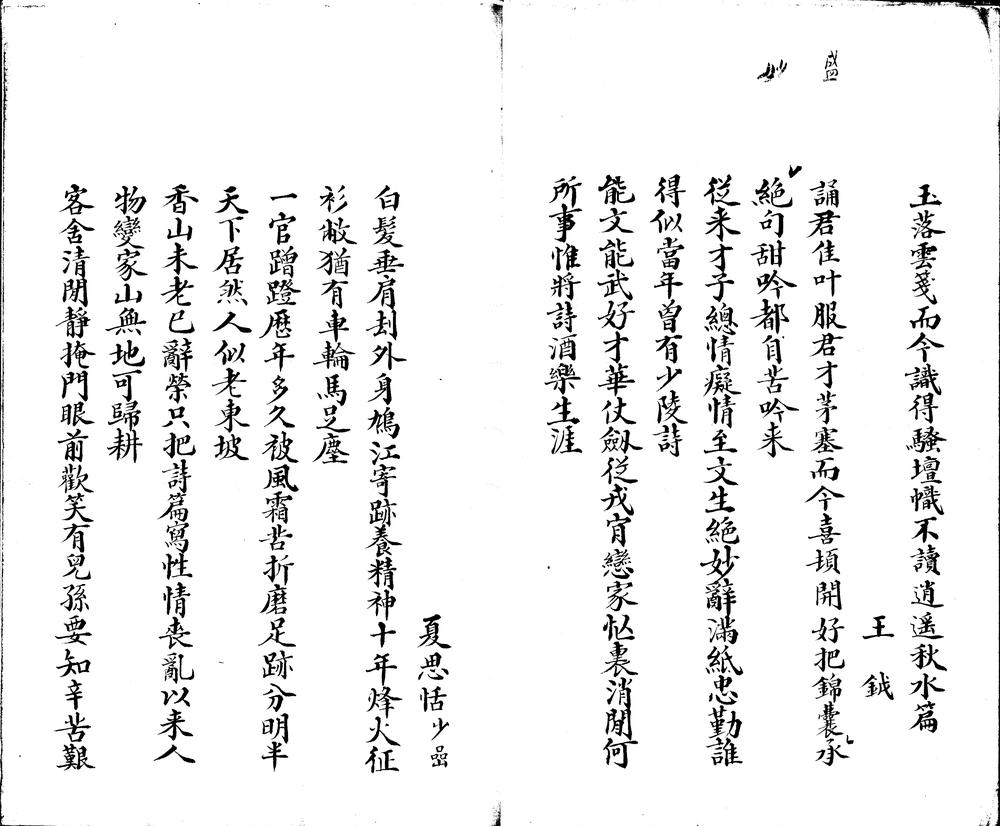 盛
妙
玉落雲箋而今識得騷壇幟不讀逍遥秋水篇
王鉞
誦君佳叶服君才茅塞而今喜頓開好把錦囊承
絕句甜吟都自苦吟来
從来才子總情癡情至文生絕妙辭滿紙忠勤誰
得似當年曽有少陵詩
能文能武好才華仗劔從戎宵戀家忙裏消閒何
所事惟將詩酒樂生涯
夏思恬少嵒
白髪垂肩刦外身鳩江寄跡養精神十年烽火征
衫敝猶有車輪馬足塵
一官蹭蹬歷年多久被風霜苦折磨足跡分明半
天下居然人似老東坡
香山未老已辭榮只把詩篇寫性情喪亂以来人
物變家山無地可歸耕
客舍清閒静掩門眼前歡笑有兒孫要知辛苦艱